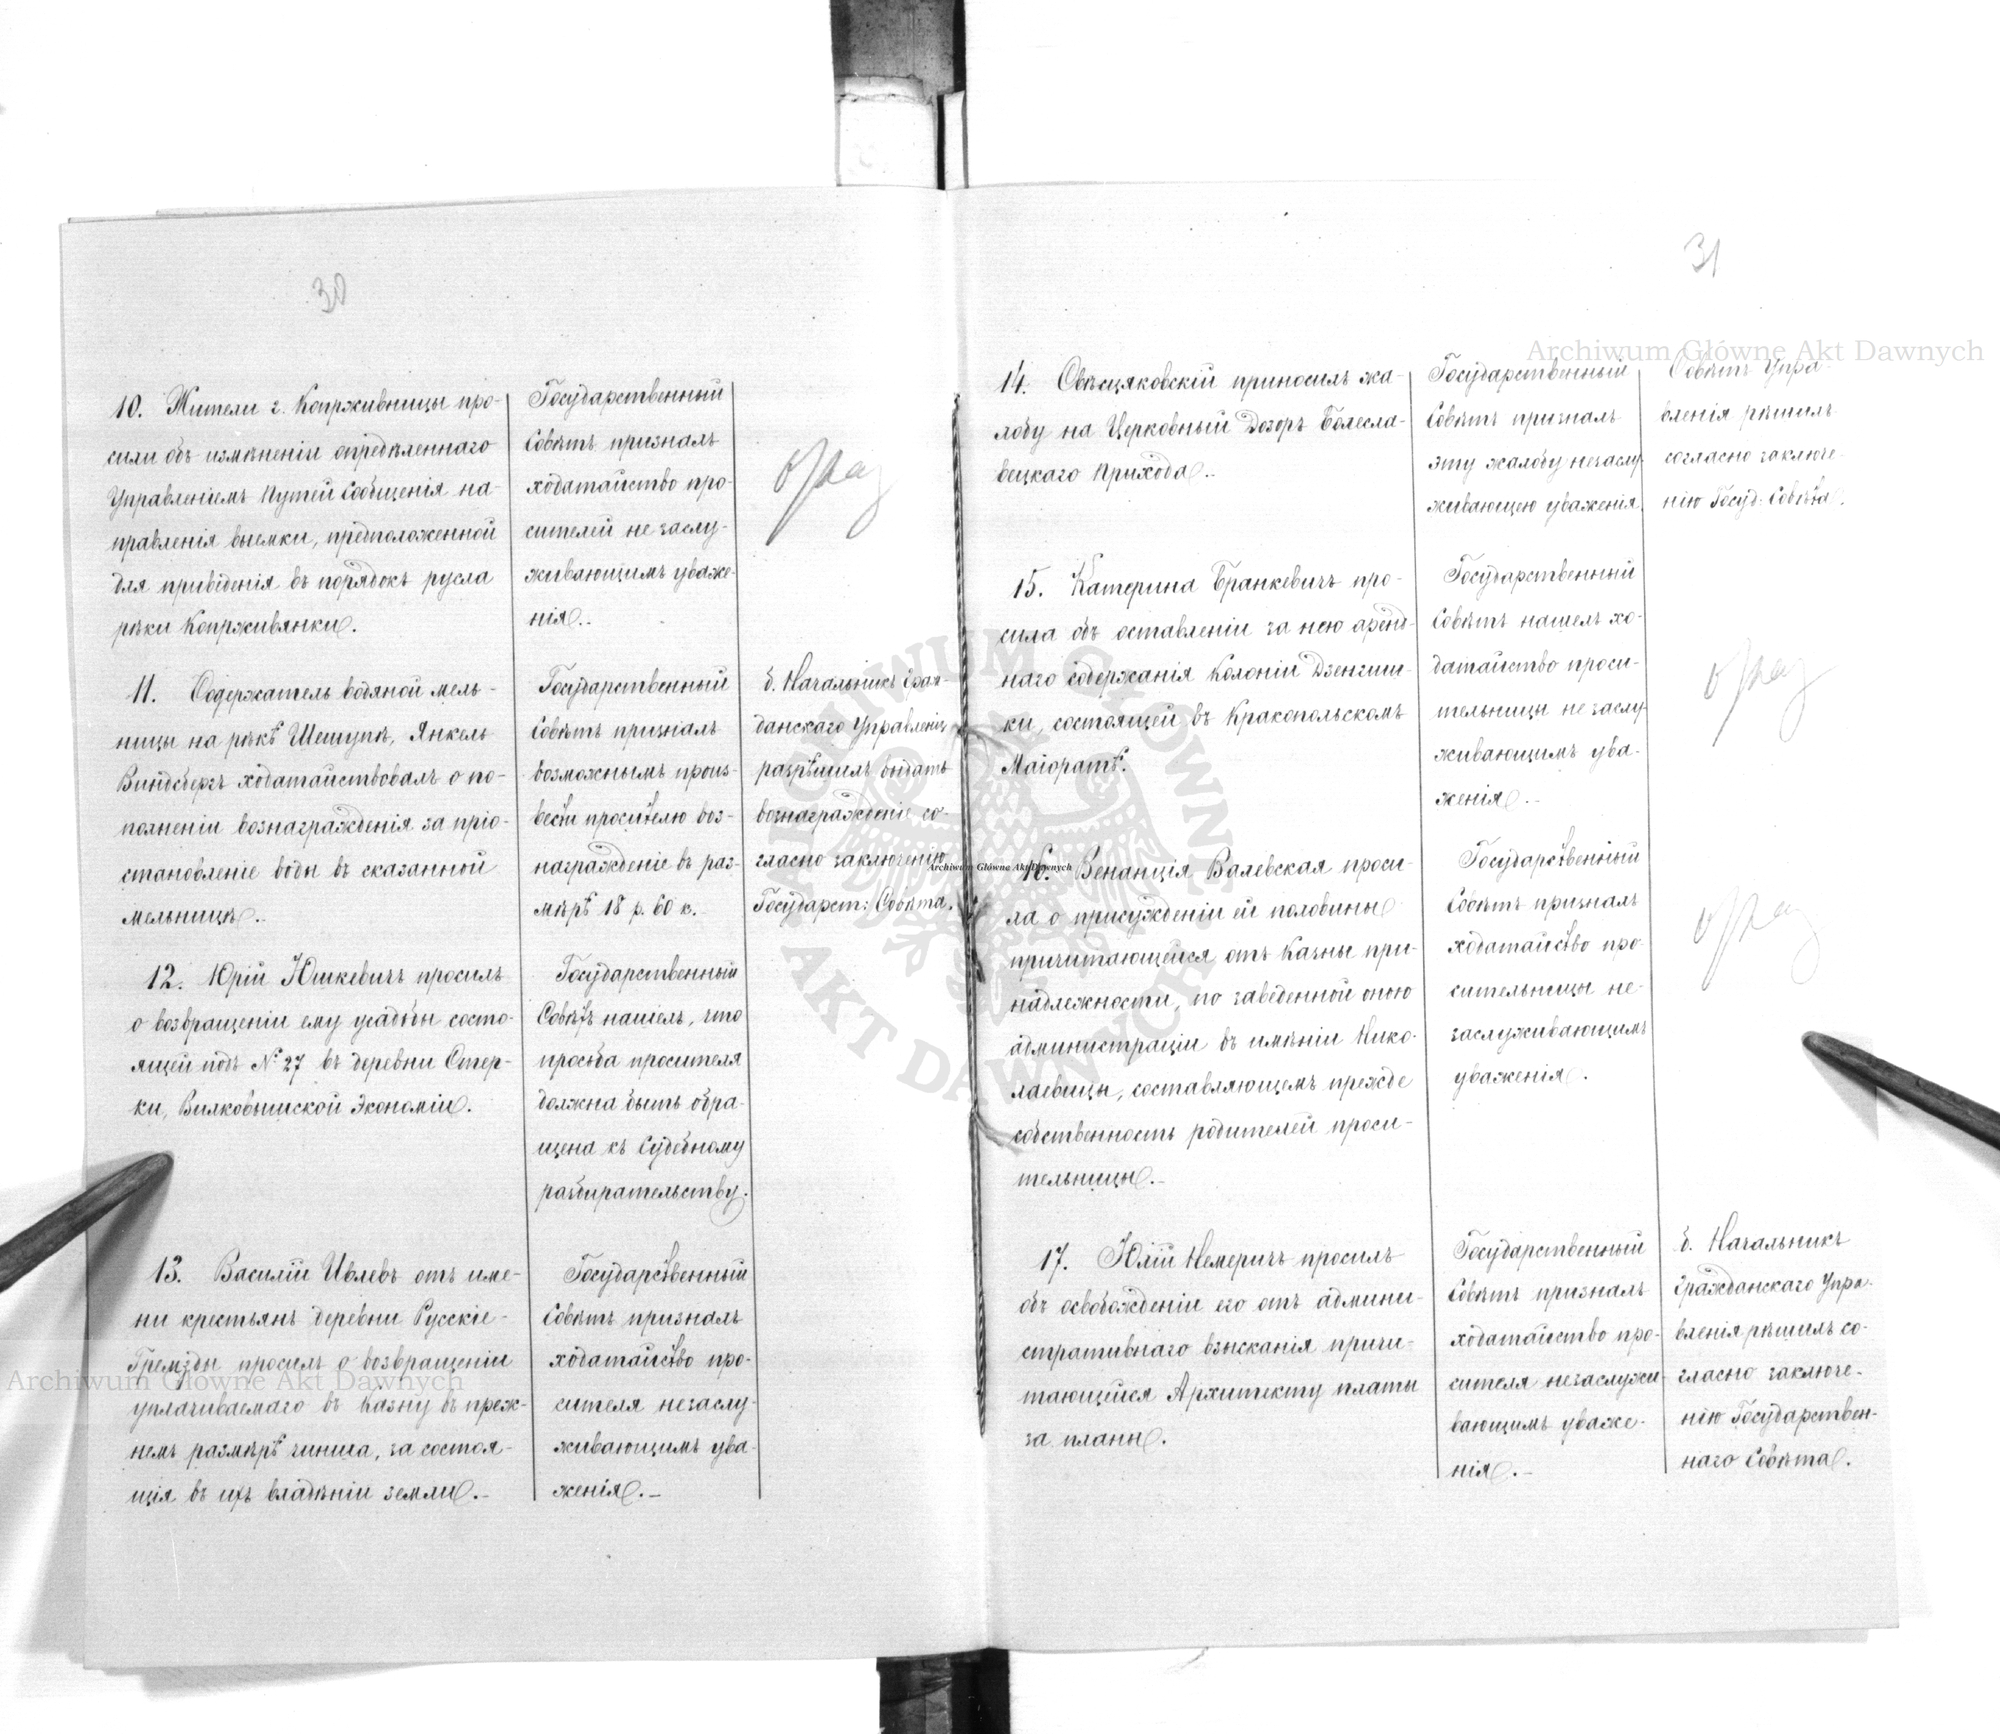 30
10. Жители г. Копрживницы про-
сили объ измѣненіи опредѣленнаго
Управленіемъ Путей Сообщенія на-
правленія выемки, предположенной
для приведенія въ порядокъ русла
рѣки Копрживянки.
Государственный
Совѣтъ призналъ
ходатайство про-
сителей не заслу-
живающимъ уваже-
нія.
11. Содержатель водяной мель-
ницы на рѣкѣ Шешупѣ, Янкель
Виндсбергъ ходатайствовалъ о по-
полненіи вознагражденія за пріо-
становленіе воды въ сказанной
мельницѣ.
Государственный
Совѣтъ призналъ
возможнымъ произ-
вести просителю воз-
награжденіе въ раз-
мѣрѣ 18 р. 60 к.
б. Начальникъ Граж-
данскаго Управленія
разрѣшилъ выдать
вознагражденіе со-
гласно заключенію
Государст: Совѣта.
12. Юрій Юшкевичъ просилъ
о возвращеніи ему усадьбы состо-
ящей подъ № 27 въ деревни Опер-
ки, Вилковышской Экономіи.
Государственный
Совѣтъ нашелъ, что
просьба просителя
должна быть обра-
щена къ Судебному
разбирательству.
13. Василій Ивлевъ отъ име-
ни крестьянъ деревни Русскіе-
Гремзды просилъ о возвращеніи
уплачиваемаго въ Казну въ преж-
немъ размѣрѣ чинша, за состоя-
щія въ ихъ владѣніи земли.
Государственный
Совѣтъ призналъ
ходатайство про-
сителя незаслу-
живающимъ ува-
женія.
31
14. Свѣсцяковскій приносилъ жа-
лобу на Церковный Дозоръ Болесла-
вецкаго Прихода.
Государственный
Совѣтъ призналъ
эту жалобу незаслу-
живающею уваженія.
Совѣтъ Упра-
вленія рѣшилъ
согласно заключе-
нію Госуд. Совѣта.
15. Катерина Бранкевичъ про-
сила объ оставленіи за нею аренд-
наго содержанія Колоніи Дзенгши-
ки, состоящей въ Кракопольскомъ
Маіоратѣ.
Государственный
Совѣтъ нашелъ хо-
датайство проси-
тельницы не заслу-
живающимъ ува-
женія.
16. Венанція Валевская проси-
ла о присужденіи ей половины
причитающейся отъ Казны при-
надлежности, по заведенной оною
администраціи въ имѣніи Нико-
лаевицы, составляющемъ прежде
собственность родителей проси-
тельницы.
Государственный
Совѣтъ призналъ
ходатайство про-
сительницы не-
заслуживающимъ
уваженія.
17. Юлій Немеричъ просилъ
объ освобожденіи его отъ админи-
стративнаго взысканія причи-
тающейся Архитекту платы
за планы.
Государственный
Совѣтъ призналъ
ходатайство про-
сителя незаслужи-
вающимъ уваже-
нія.
б. Начальникъ
Гражданскаго Упра-
вленія рѣшилъ со-
гласно заключе-
нію Государствен-
наго Совѣта.
Archiwum Główne Akt Dawnych
Archiwum Główne Akt Dawnych
Archiwum Główne Akt Dawnych
ARCHIWUM GŁÓWNE AKT DAWNYCH